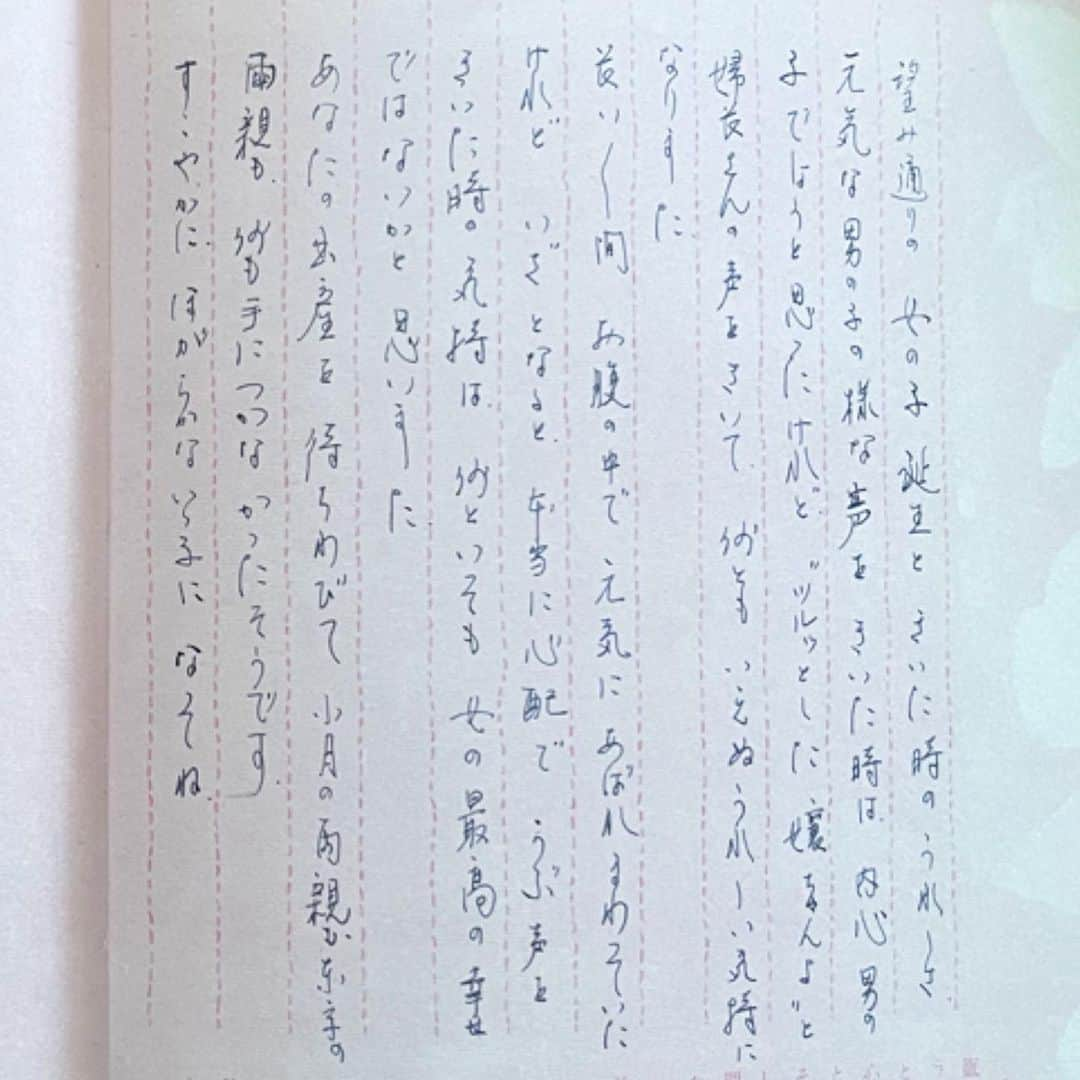 望み通りの 女の子 誕生と きいた時のうれしさ.
元気な男の子の様な声を きいた時は 内心 男の
子でしょうと思ったけれど "ツルッとした 嬢さんよ"と
婦長さんの声をきいて、何とも いえぬ うれしい気持に
なりました
長い〱間 お腹の中で 元気に あばれまわっていた
けれど いざとなると、本当に心配で うぶ声を
きいた時の気持は、何といっても 女の最高の幸せ
ではないかと思いました.
あなたの出産を 待ちわびて 小月の両親も、東京の
両親も、何も手につかなかったそうです.
すこやかに、ほがらかな いい子に なってね.